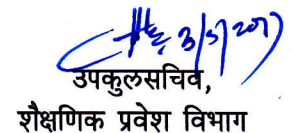 3/5/2017
उपकुलसचिव,
शैक्षणिक प्रवेश विभाग